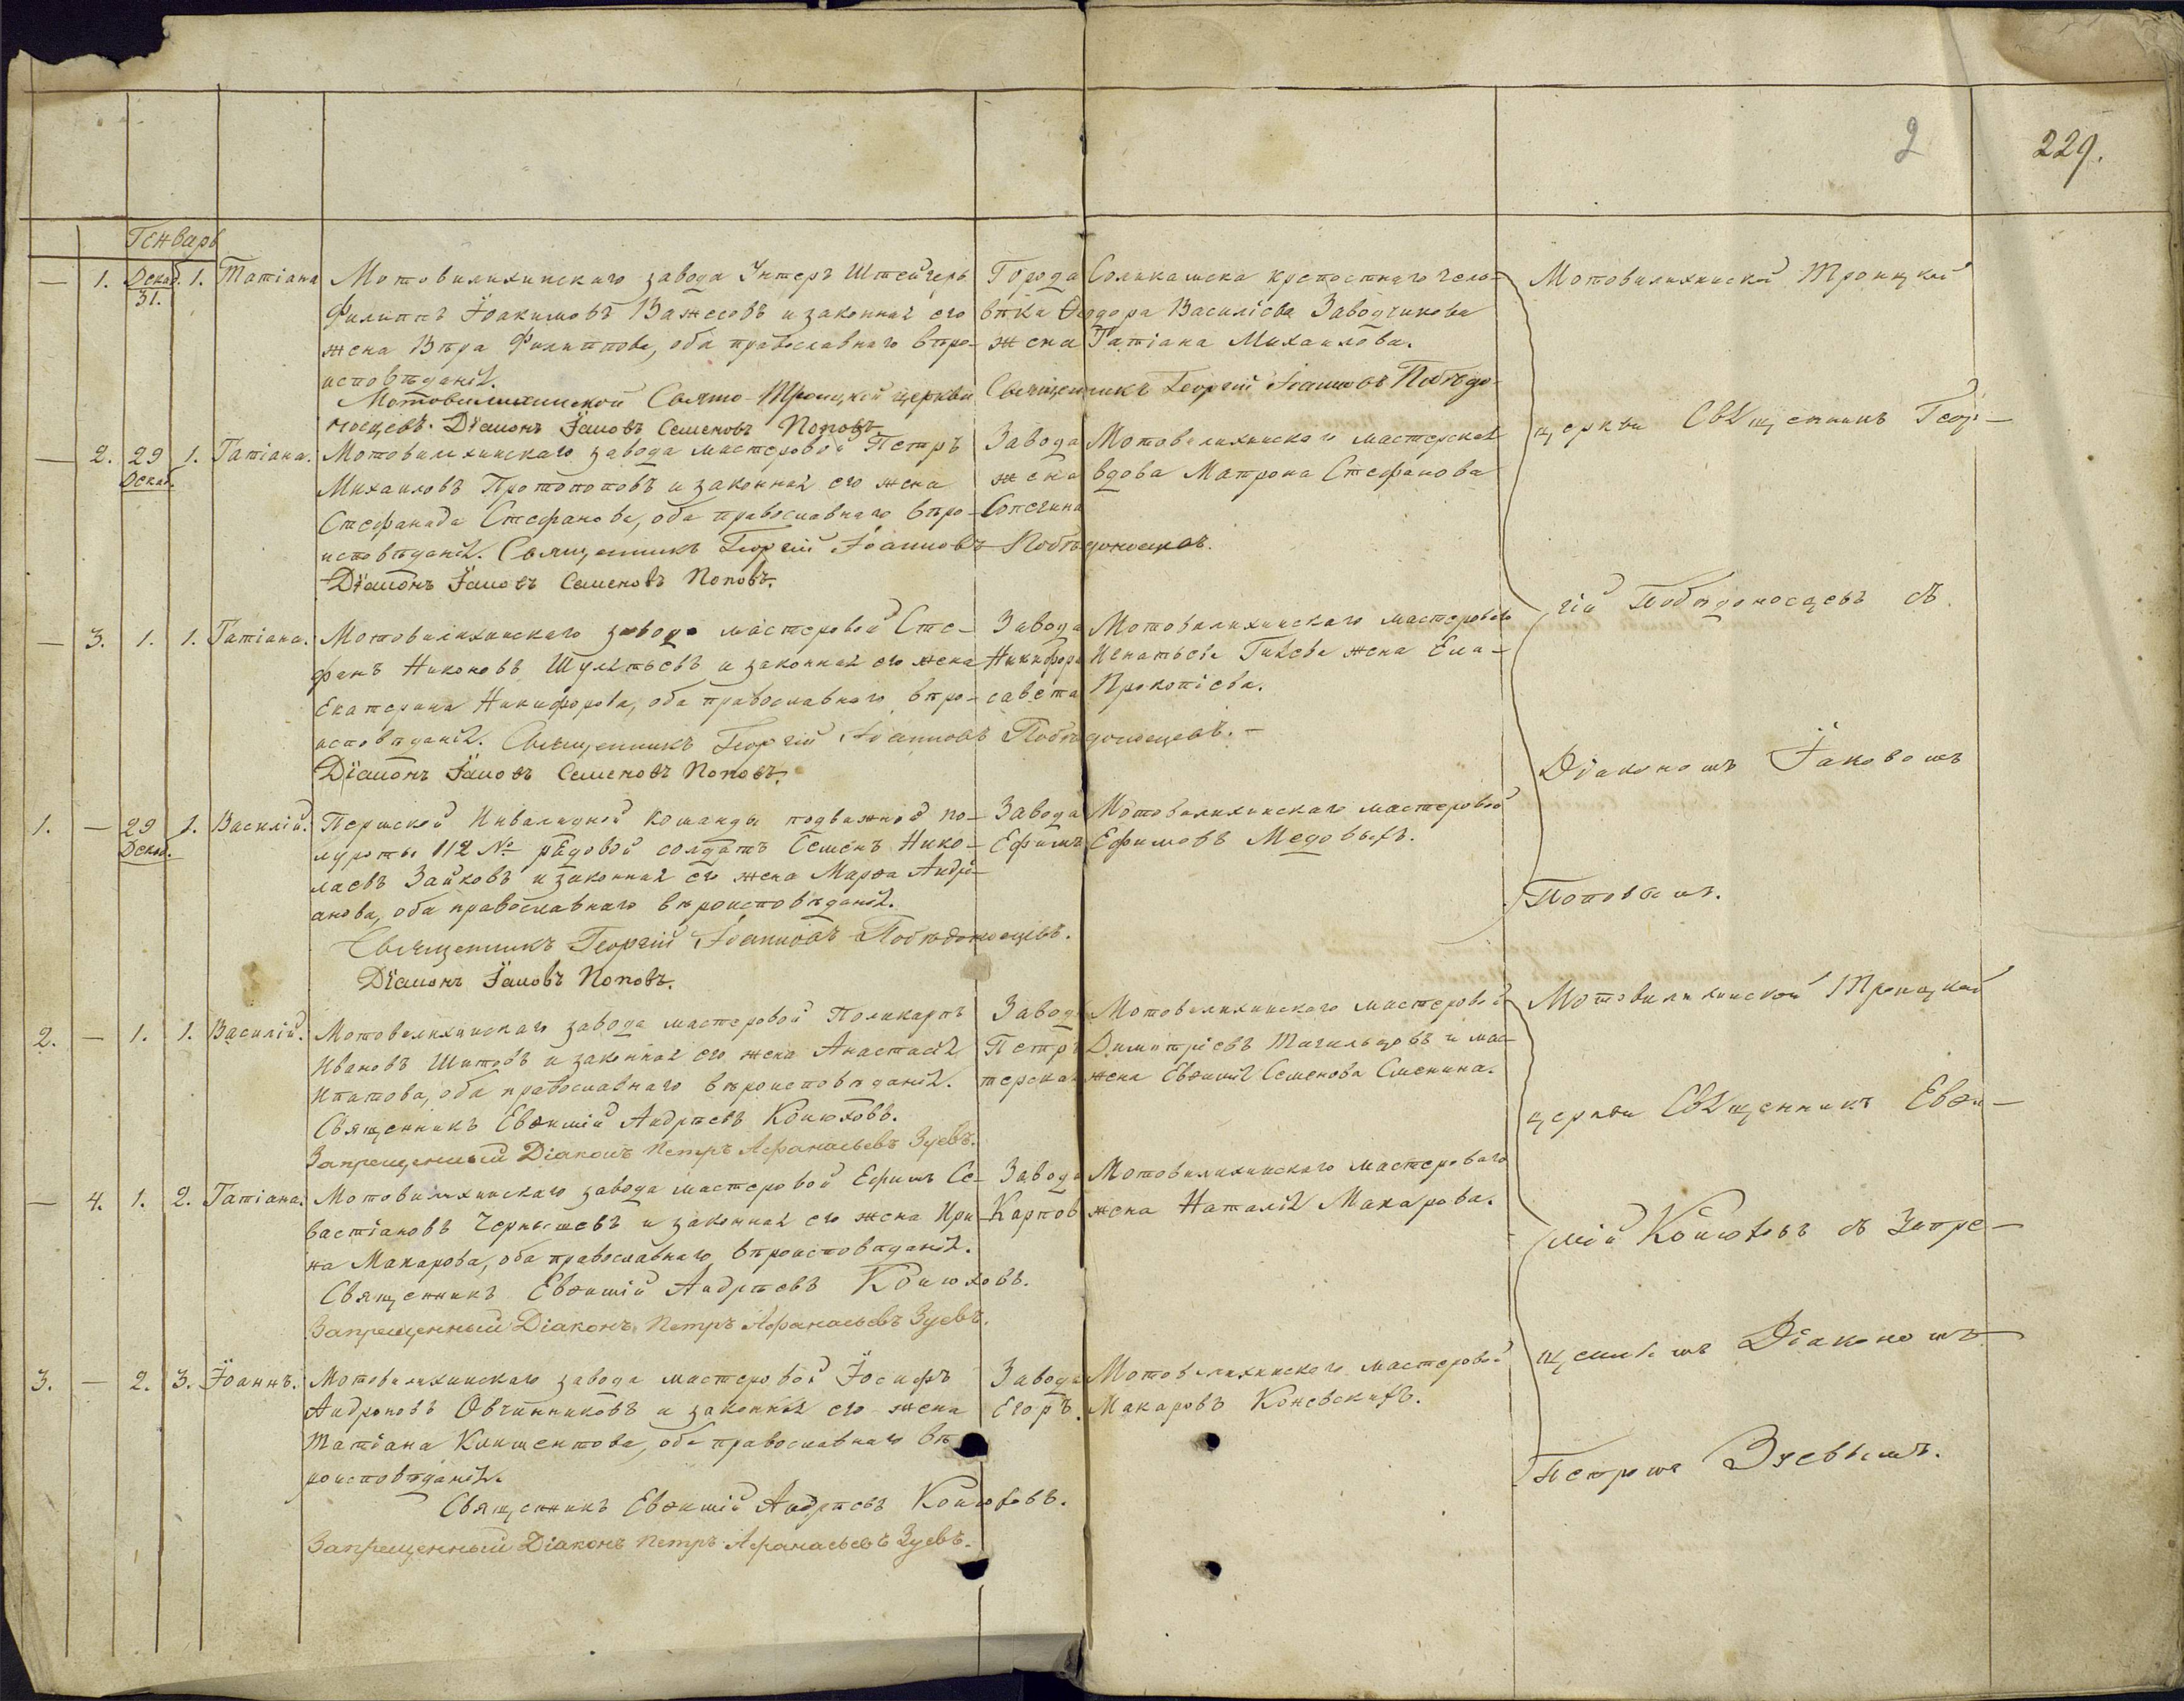 2
229.
Генварь
— 1. Декаб. 31. 1. Татіана
Мотовилихинскаго завода Унтеръ Штейгеръ
Филиппъ Іоакимовъ Важесовъ и законная его
жена Вѣра Филиппова, оба православнаго вѣро-
исповѣданія.
Мотовилихинской Свято-Троицкой церкви Священникъ Георгій Іоанновъ Побѣдо-
носцевъ. Діаконъ Іаковъ Семеновъ Поповъ
Города Соликамска крепостнаго чело-
вѣка Ѳеодора Василіева Заводчикова
жена Татіана Михаилова.
— 2. 29 Декаб. 1. Татіана.
Мотовилихинскаго завода мастеровой Петръ
Михаиловъ Протопоповъ и законная его жена
Стефанида Стефанова, оба православнаго вѣро-
исповѣданія. Священникъ Георгій Іоанновъ Побѣдоносцевъ.
Діаконъ Іаковъ Семеновъ Поповъ.
Завода Мотовилихинскаго мастерская
жена вдова Матрона Стефанова
Сопегина
— 3. 1. 1. Татіана.
Мотовилихинскаго завода мастеровой Сте-
фанъ Никоновъ Шулятьевъ и законная его жена
Екатерина Никифорова, оба православнаго вѣро-
исповѣданія. Священникъ Георгій Іоанновъ Побѣдоносцевъ. —
Діаконъ Іаковъ Семеновъ Поповъ.
Завода Мотовилихинскаго мастероваго
Никифора Игнатьева Гилева жена Ели-
савета Прокопіева.
1. — 29 Декаб. 1. Василій.
Пермской Инвалидной Команды подвижной по-
луроты 112 № рядовой солдатъ Семенъ Нико-
лаевъ Зайковъ и законная его жена Марѳа Андрі-
анова, оба православнаго вѣроисповѣданія.
Священникъ Георгій Іоанновъ Побѣдоносцевъ.
Діаконъ Іаковъ Поповъ.
Завода Мотовилихинскаго мастеровой
Ефимъ Ефимовъ Медовыхъ.
2. — 1. 1. Василій.
Мотовилихинскаго завода мастеровой Поликарпъ
Ивановъ Шитовъ и законная его жена Анастасія
Ипатова, оба православнаго вѣроисповѣданія.
Священникъ Евѳимій Андреевъ Конюховъ.
Запрещенный Діаконъ Петръ Афанасьевъ Зуевъ.
Завода Мотовилихинскаго мастеровой
Петръ Димитріевъ Тагильцовъ и мас-
терская жена Евѳимія Семенова Сменина.
— 4. 1. 2. Татіана.
Мотовилихинскаго завода мастеровой Ефимъ Се-
вастіановъ Чернышевъ и законная его жена Ири-
на Макарова, оба православнаго вѣроисповѣданія.
Священникъ Евѳимій Андреевъ Конюховъ.
Запрещенный Діаконъ Петръ Афанасьевъ Зуевъ.
Завода Мотовилихинскаго мастероваго
Карпов жена Наталія Макарова.
3. — 2. 3. Іоаннъ.
Мотовилихинскаго завода мастеровой Іосифъ
Андроновъ Овчинниковъ и законная его жена
Татіана Климентова, оба православнаго вѣ-
роисповѣданія.
Священникъ Евѳимій Андреевъ Конюховъ.
Запрещенный Діаконъ Петръ Афанасьевъ Зуевъ.
Завода Мотовилихинскаго мастеровой
Егоръ Макаровъ Коневскихъ.
Мотовилихинской Троицкой
церкви Священникъ Геор-
гій Побѣдоносцевъ съ
Діакономъ Іаковомъ
Поповымъ.
Мотовилихинской Троицкой
церкви Священникъ Евѳи-
мій Конюховъ съ Запре-
щеннымъ Діакономъ
Петромъ Зуевымъ.